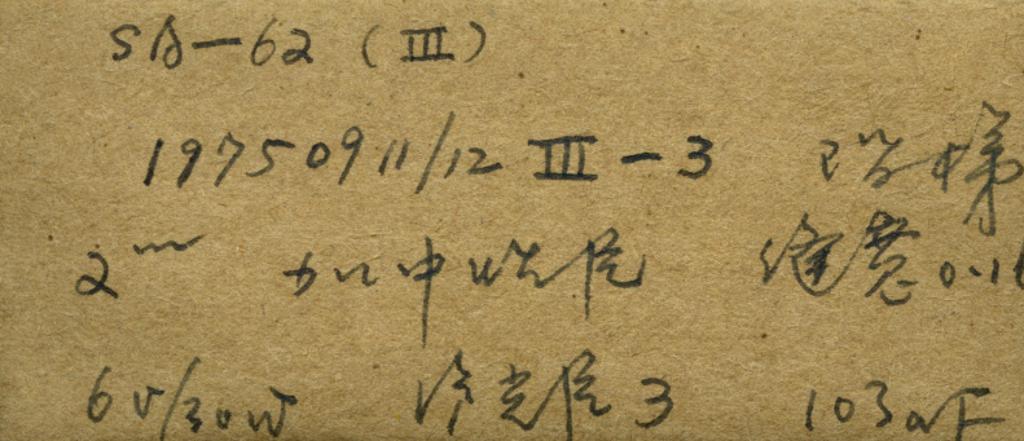 SA-62 (III)
19750911/12 III-3 阶梯
2ᵐ 加中性片 缝宽0.1
6V/30W 滤光片3 103aF